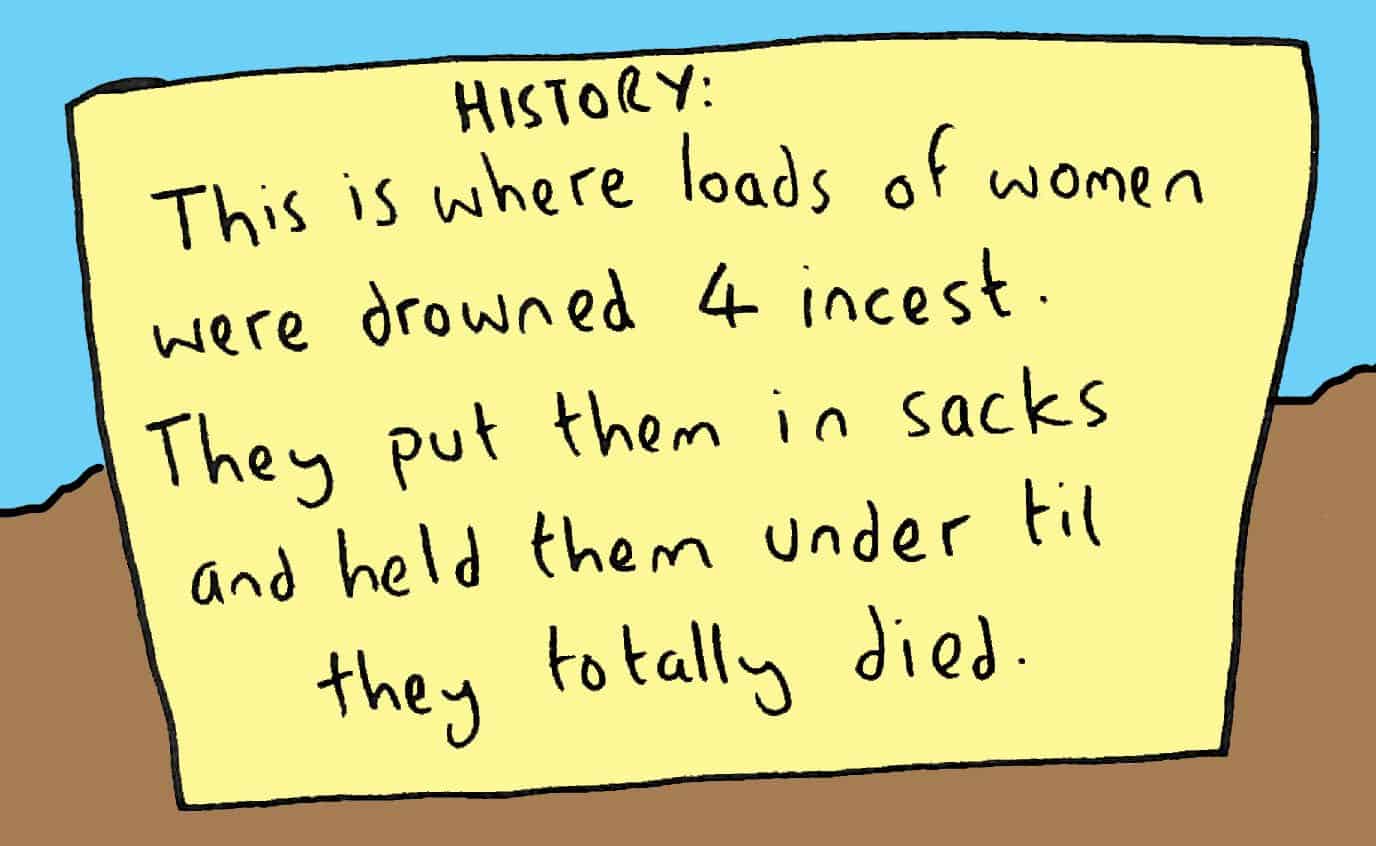 HISTORY:
This is where loads of women
were drowned 4 incest.
They put them in sacks
and held them under til
they totally died.